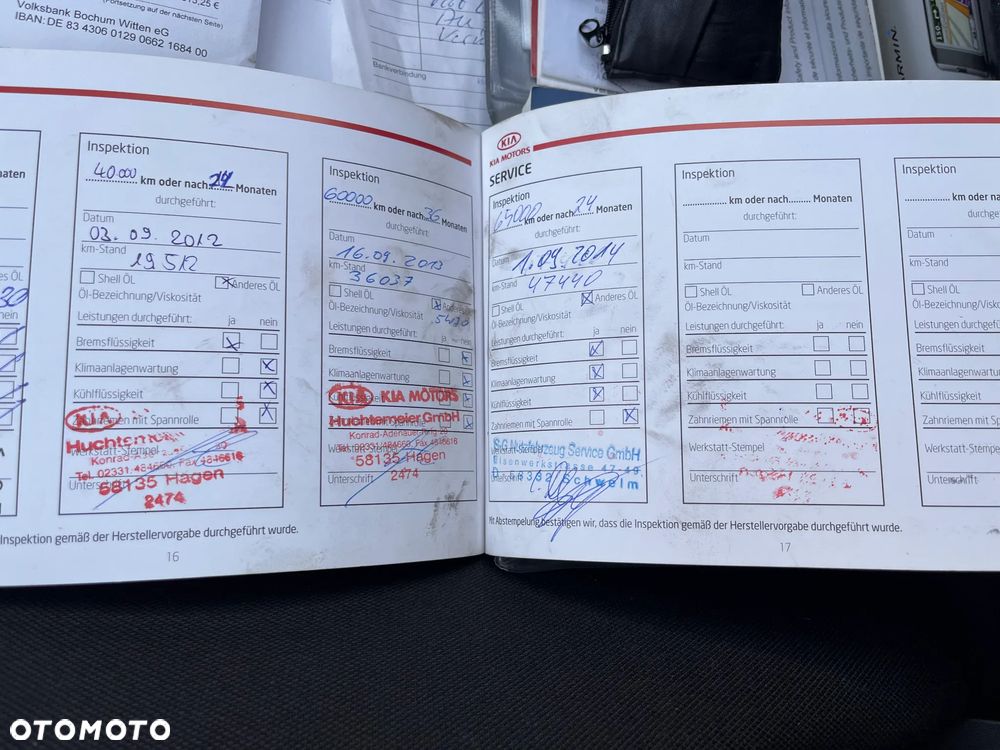 (Fortsetzung auf der nächsten Seite)
Volksbank Bochum Witten eG
IBAN: DE 83 4306 0129 0662 1684 00
Bankverbindung
Inspektion
40.000 km oder nach 24 Monaten
durchgeführt:
Datum
03.09.2012
km-Stand
19512
Shell ÖL
Anderes ÖL
Öl-Bezeichnung/Viskosität
Leistungen durchgeführt: ja nein
Bremsflüssigkeit
Klimaanlagenwartung
Kühlflüssigkeit
Zahnriemen mit Spannrolle
Werkstatt-Stempel
Unterschrift
KIA
Tel. 02331/484668, Fax 4846616
58135 Hagen
2474
Inspektion
60000 km oder nach 36 Monaten
durchgeführt:
Datum
16.09.2013
km-Stand
36037
Shell ÖL
Öl-Bezeichnung/Viskosität
Leistungen durchgeführt: ja nein
Bremsflüssigkeit
Klimaanlagenwartung
KIA KIA MOTORS
Huchtemeier GmbH
Tel. 02331/484668, Fax 4846616
58135 Hagen
Unterschrift
2474
Inspektion gemäß der Herstellervorgabe durchgeführt wurde.
16
KIA
KIA MOTORS
SERVICE
Inspektion
65000 km oder nach 24 Monaten
durchgeführt:
Datum
1.09.2014
km-Stand
47440
Shell ÖL
Anderes ÖL
Öl-Bezeichnung/Viskosität
Leistungen durchgeführt: ja nein
Bremsflüssigkeit
Klimaanlagenwartung
Kühlflüssigkeit
Zahnriemen mit Spannrolle
Service GmbH
Eisenwerkstrasse 47-49
D - 58332 Schwelm
Inspektion
km oder nach Monaten
durchgeführt:
Datum
km-Stand
Shell ÖL
Anderes ÖL
Öl-Bezeichnung/Viskosität
Leistungen durchgeführt: ja nein
Bremsflüssigkeit
Klimaanlagenwartung
Kühlflüssigkeit
Zahnriemen mit Spannrolle
Werkstatt-Stempel
Unterschrift
Inspektion
km oder
Datum
km-Stand
Shell ÖL
Öl-Bezeichnung/Viskosität
Leistungen durchgeführt:
Bremsflüssigkeit
Klimaanlagenwartung
Kühlflüssigkeit
Zahnriemen mit Spannrolle
Werkstatt-Stempel
Unterschrift
Mit Abstempelung bestätigen wir, dass die Inspektion gemäß der Herstellervorgabe durchgeführt wurde.
17
OTOMOTO